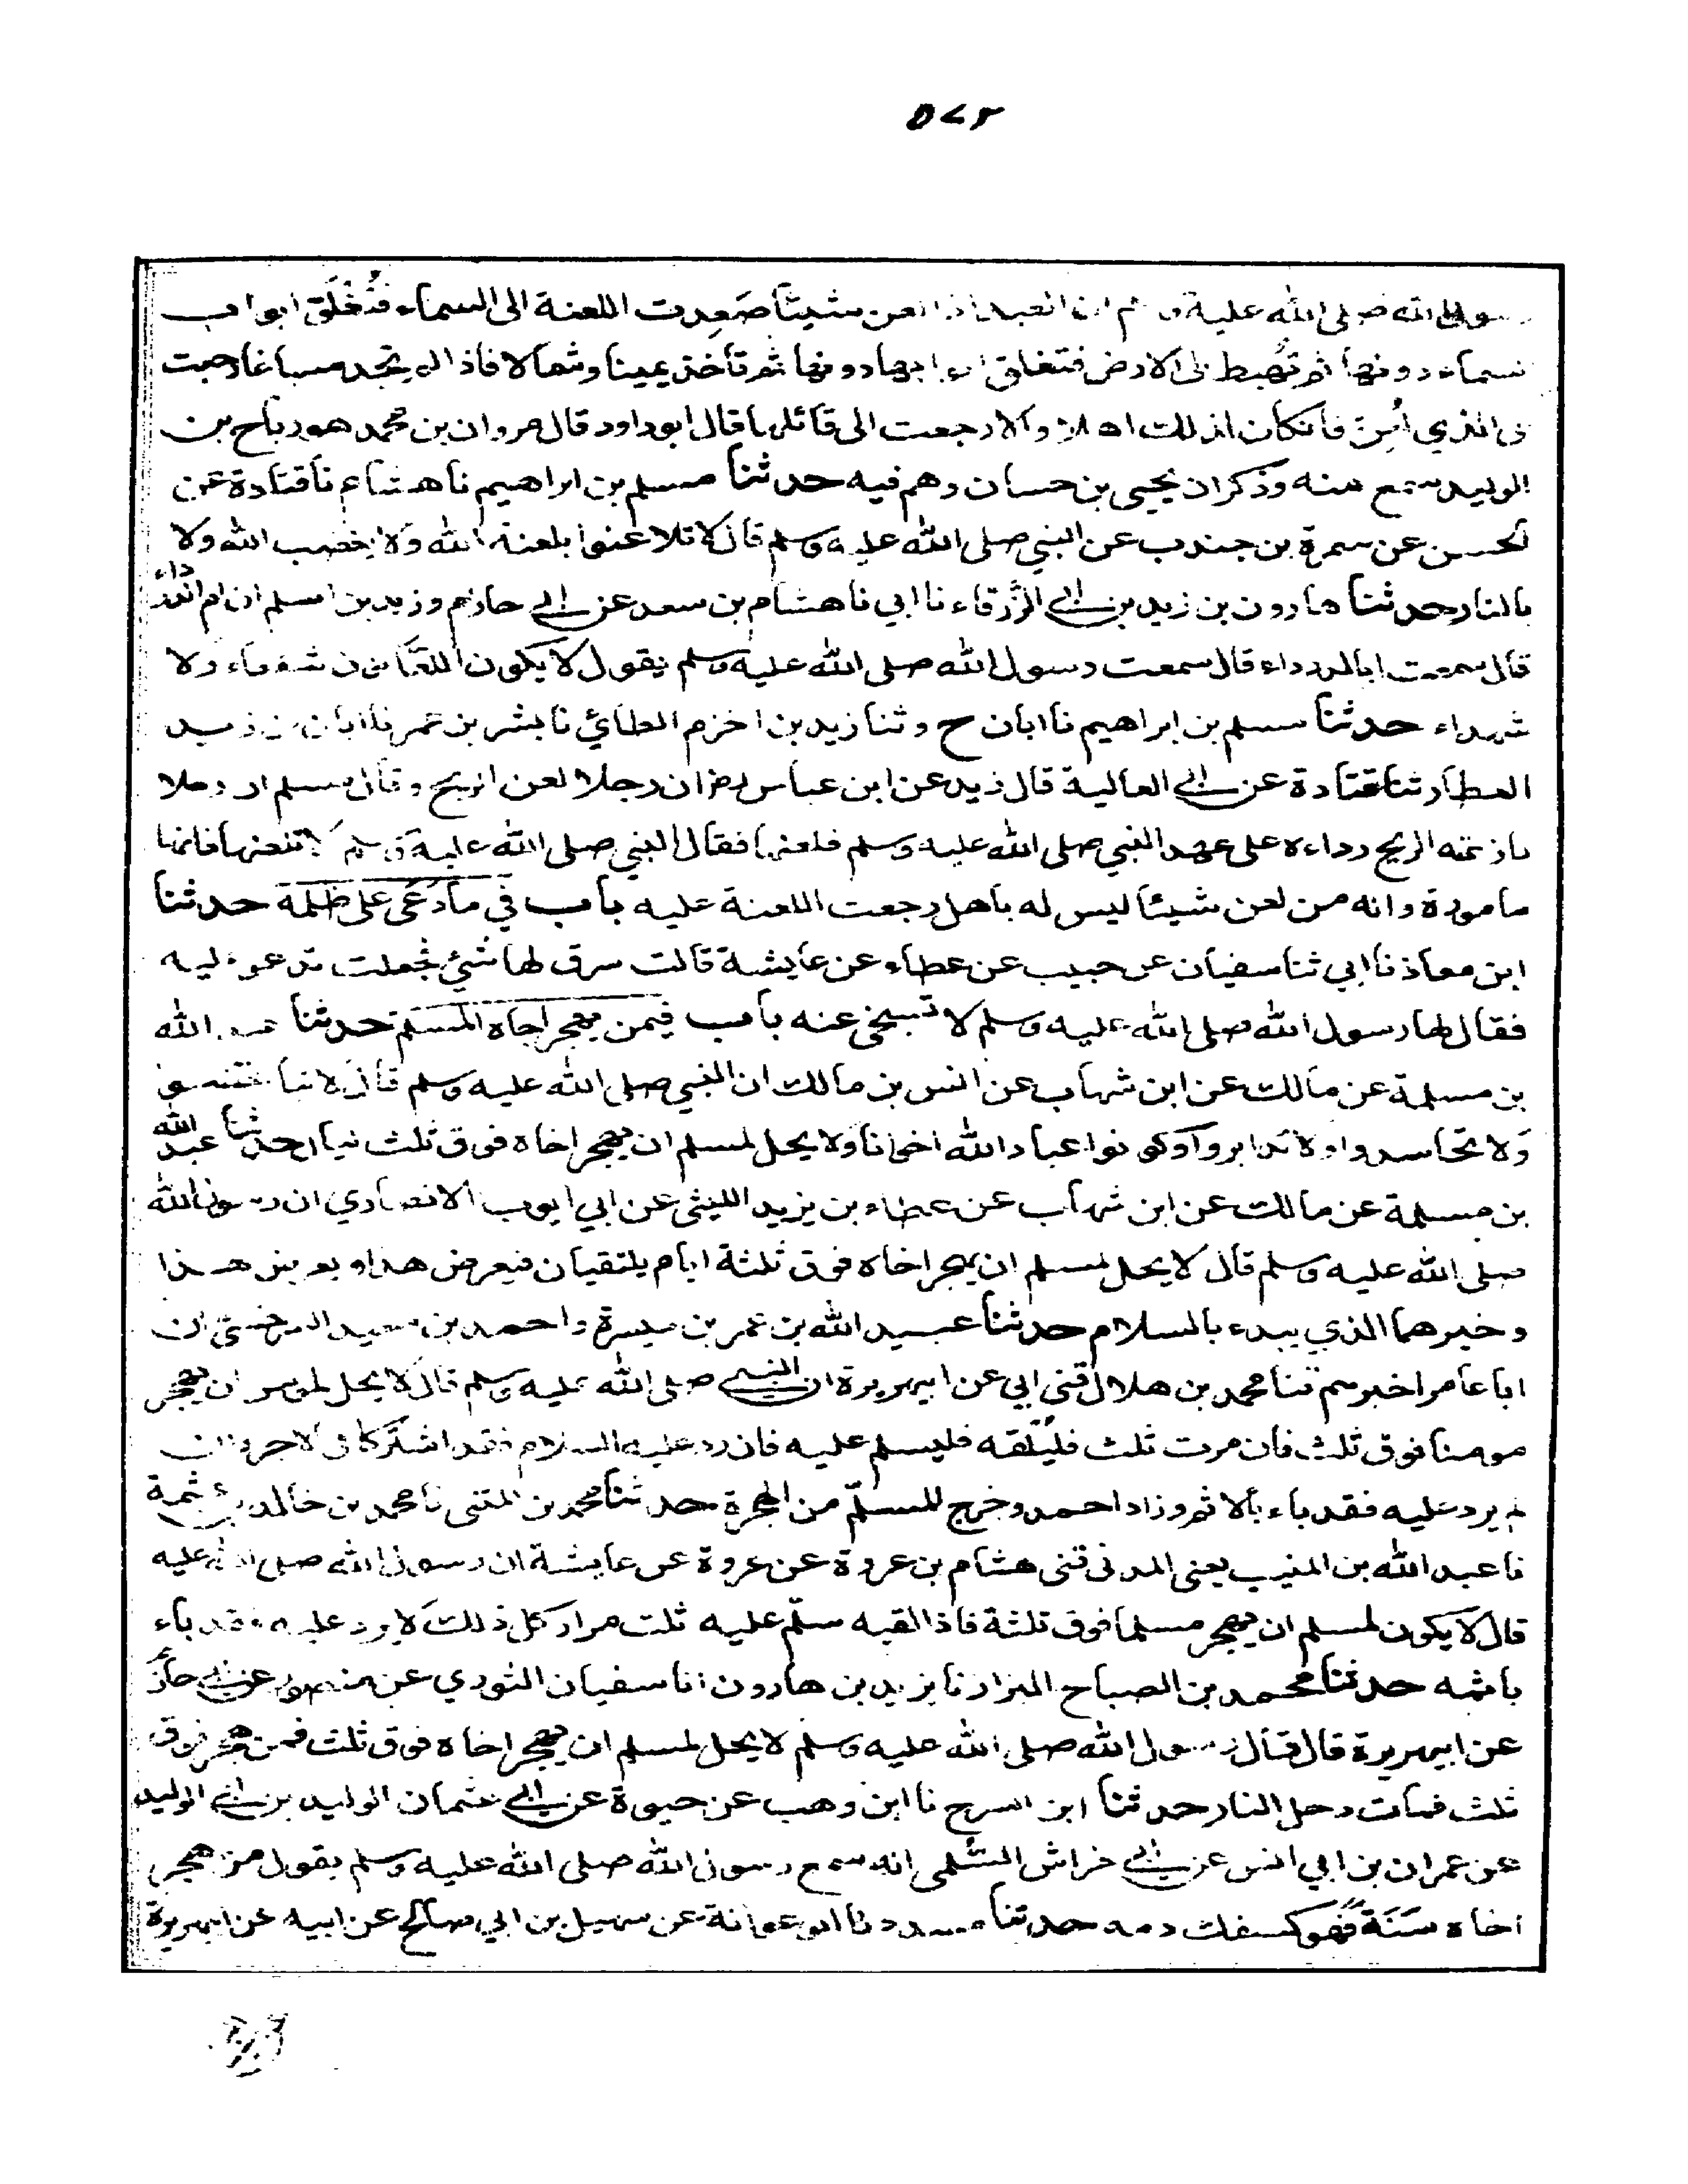 ٥٧٢
رسول الله صلى الله عليه وسلم ان العبد اذا لعن شيئا صَعِدت اللعنة الى السماء فتُغْلَق ابواب
السماء دونها ثم تَهبط الى الارض فتغلق ابوابها دونها ثم تأخذ يمينا وشمالا فاذا لم تجد مساغا رجعت
الى الذي لُعِنَ فان كان لذلك اهلا والا رجعت الى قائلها قال ابو داود قال مروان بن محمد هو رباح بن
الوليد سمع منه وذكر ان يحيى بن حسان وهم فيه حدثنا مسلم بن ابراهيم نا هشام نا قتادة عن
الحسن عن سمرة بن جندب عن النبي صلى الله عليه وسلم قال لا تلاعنوا بلعنة الله ولا بغضب الله ولا
بالنار حدثنا هارون بن زيد بن ابي الزَّرقاء نا ابي نا هشام بن سعد عن ابي حازم وزيد بن اسلم ان ام الدرداء
قال سمعت ابا الدرداء قال سمعت رسول الله صلى الله عليه وسلم يقول لا يكون اللعّانون شفعاء ولا
شهداء حدثنا مسلم بن ابراهيم نا ابان ح وثنا زيد بن اخزم الطائي نا بشر بن عمر نا ابان بن زيد
العطار ثنا قتادة عن ابي العالية قال زيد عن ابن عباس ان رجلا لعن الريح وقال مسلم ان رجلا
نازعته الريح رداءه على عهد النبي صلى الله عليه وسلم فلعنها فقال النبي صلى الله عليه وسلم لا تلعنها فانها
مامورة وانه من لعن شيئا ليس له باهل رجعت اللعنة عليه باب في من دعى على ظلمة حدثنا
ابن معاذ نا ابي ثنا سفيان عن حبيب عن عطاء عن عايشة قالت سرق لها شئ فجعلت تدعو عليه
فقال لها رسول الله صلى الله عليه وسلم لا تسبخي عنه باب فيمن يهجر اخاه المسلم حدثنا عبد الله
بن مسلمة عن مالك عن ابن شهاب عن انس بن مالك ان النبي صلى الله عليه وسلم قال لا تباغضوا
وَلا تحاسدوا ولا تدابروا وكونوا عباد الله اخوانا ولا يحل لمسلم ان يهجر اخاه فوق ثلث ليال حدثنا عبد الله
بن مسلمة عن مالك عن ابن شهاب عن عطاء بن يزيد الليثي عن ابي ايوب الانصاري ان رسول الله
صلى الله عليه وسلم قال لا يحل لمسلم ان يهجر اخاه فوق ثلثة ايام يلتقيان فيعرض هذا ويعرض هذا
وخيرهما الذي يبدء بالسلام حدثنا عبيد الله بن عمر بن ميسرة واحمد بن سعيد السرخسي ان
ابا عامر اخبرهم ثنا محمد بن هلال ثني ابي عن ابيهريرة ان النبي صلى الله عليه وسلم قال لا يحل لمومن ان يهجر
مومنا فوق ثلث فان مرت ثلث فليَلقه فليسلم عليه فان رد عليه السلام فقد اشتركا في الاجر وان
لم يرد عليه فقد باء بالاثم وزاد احمد وخرج المسلّم من الهجرة حدثنا محمد بن المثنى نا محمد بن خالد بن عثمة
نا عبد الله بن المنيب يعني المدني ثني هشام بن عروة عن عروة عن عايشة ان رسول الله صلى الله عليه
قال لا يكون لمسلم ان يهجر مسلما فوق ثلثة فاذا لقيه سلّم عليه ثلث مرار كل ذلك لا يرد عليه فقد باء
باثمه حدثنا محمد بن الصباح البزار نا يزيد بن هارون انا سفيان الثوري عن منصور عن ابي حازم
عن ابيهريرة قال قال رسول الله صلى الله عليه وسلم لا يحل لمسلم ان يهجر اخاه فوق ثلث فمن هجر فوق
ثلث فمات دخل النار حدثنا ابن السرح نا ابن وهب عن حيوة عن ابي عثمان الوليد بن ابي الوليد
عن عمران بن ابي انس عن ابي خراش السُّلمى انه سمع رسول الله صلى الله عليه وسلم يقول من هجر
اخاه سَنَة فَهو كسفك دمه حدثنا مسدد نا ابو عوانة عن سهيل بن ابي صالح عن ابيه عن ابيهريرة